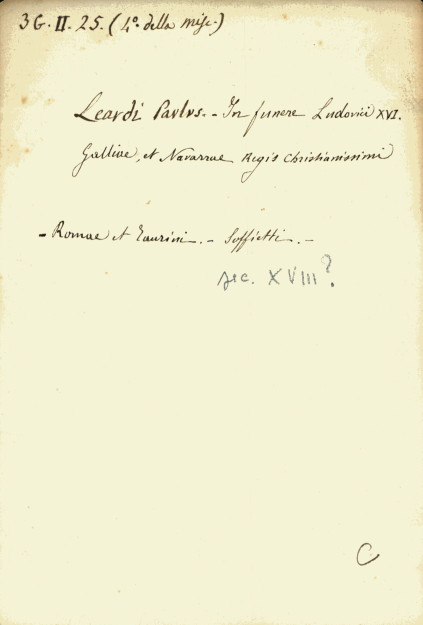 3G. II. 25. (4º. della Misc.)
Leardi Paulus. - In funere Ludovici XVI.
Galliae, et Navarrae Regis Christianissimi
- Romae et Taurini. - Soffietti. -
sec. XVIII?
C